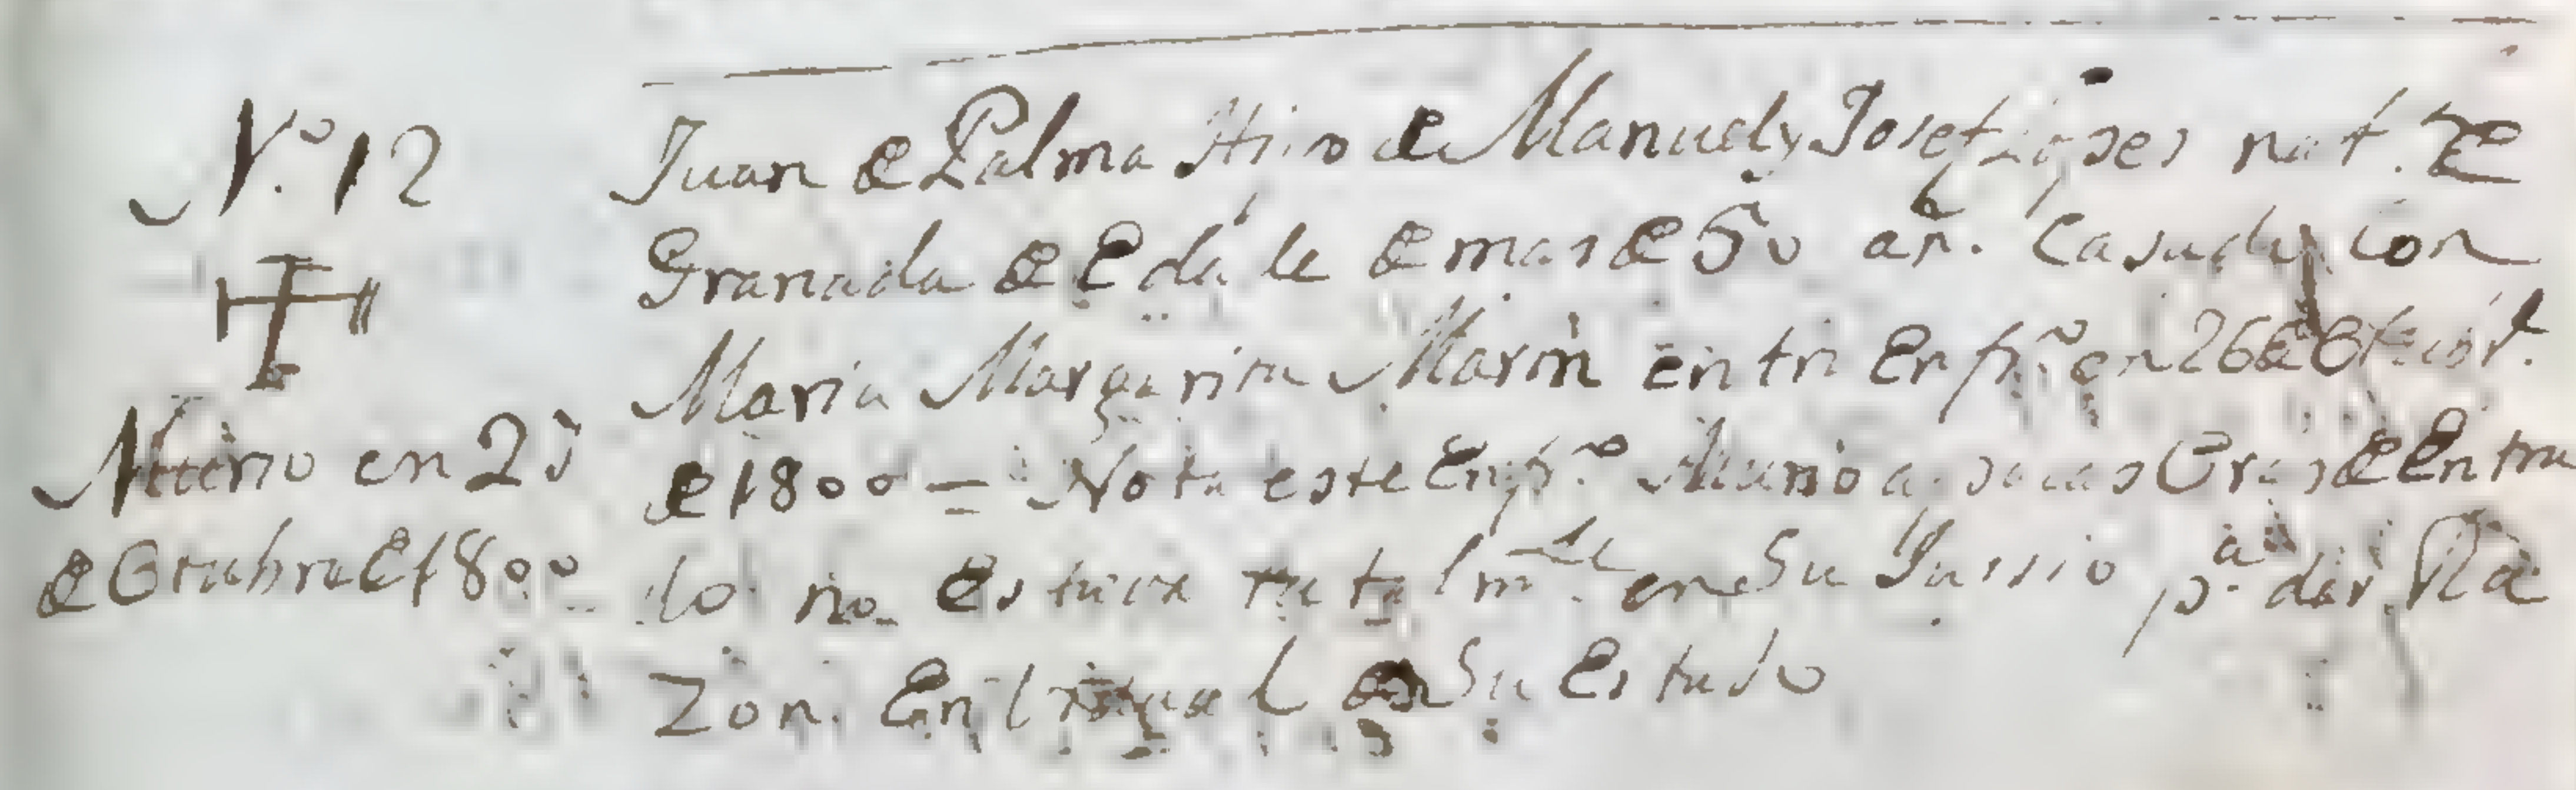 N.º 12
Murio en 25
de Otubre de 1800
Juan de Palma Hijo de Manuel y Josef Lopes nat. de
Granada de Eda de de mas de 50 añ. Casado con
Maria Margarita Marin entri Enfr.º en 26 de
de 1800 = Nota este Enfr.º Murio a pocas Oras de Entra
do no estuvo tal m.te en Su Juissio p.a dar Ra
Zon. en Su Estado